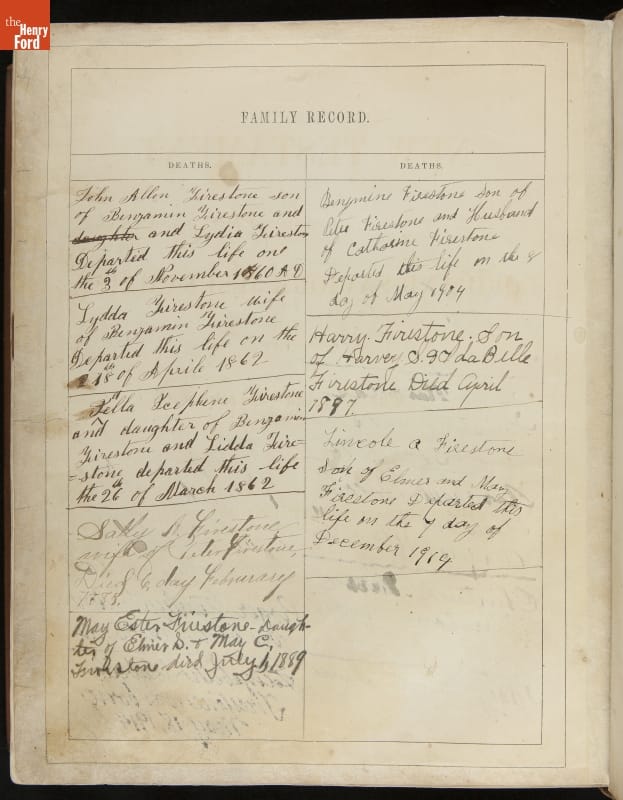 the
Henry
Ford
FAMILY RECORD.
DEATHS.
John Allen Firestone son
of Benjamin Firestone and
daughter and Lydia Firestone
Departed this life one
the 3th of November 1860 A D
Lydda Firestone wife
of Benjamin Firestone
Departed this life on the
18th of Aprile 1862
and daughter of Benjamin
Firestone and Lidda Fire=
=stone departed this life
the 26th of March 1862
Sally Firestone
wife of Peter Firestone,
Died 6 day Februrary
May Ester Firestone- Daugh-
ter of Elmer S. & May C.
Firestone died July 1, 1889
DEATHS.
Benjmine Firestone son of
Peter Firestone and Husband
of Catharine Firestone
Departed this life on the 8
day of May 1904
Harry. Firestone. Son
of Harvey S. & IdaBelle
Firestone Died April
1897.
Lincole a Firestone
Son of Elmer and May
Firestone Departed this
life on the 9 day of
December 1904